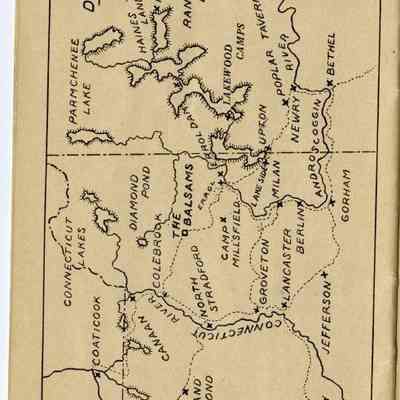 PARMCHENEE
LAKE
HAINES
RAN
LAKEWOOD
CAMPS
POPLAR TAVERN
RIVER
NEWRY
BETHEL
UPTON
LAKESIDE
MILAN
ANDROSCOGGIN
BERLIN
GORHAM
ERROL DAM
ERROL
CONNECTICUT
LAKES
DIAMOND
POND
THE
BALSAMS
CAMP
MILLSFIELD
COLEBROOK
NORTH
STRADFORD
GROVETON
LANCASTER
JEFFERSON
CONNECTICUT
RIVER
COATICOOK
CANAAN
AND
OND